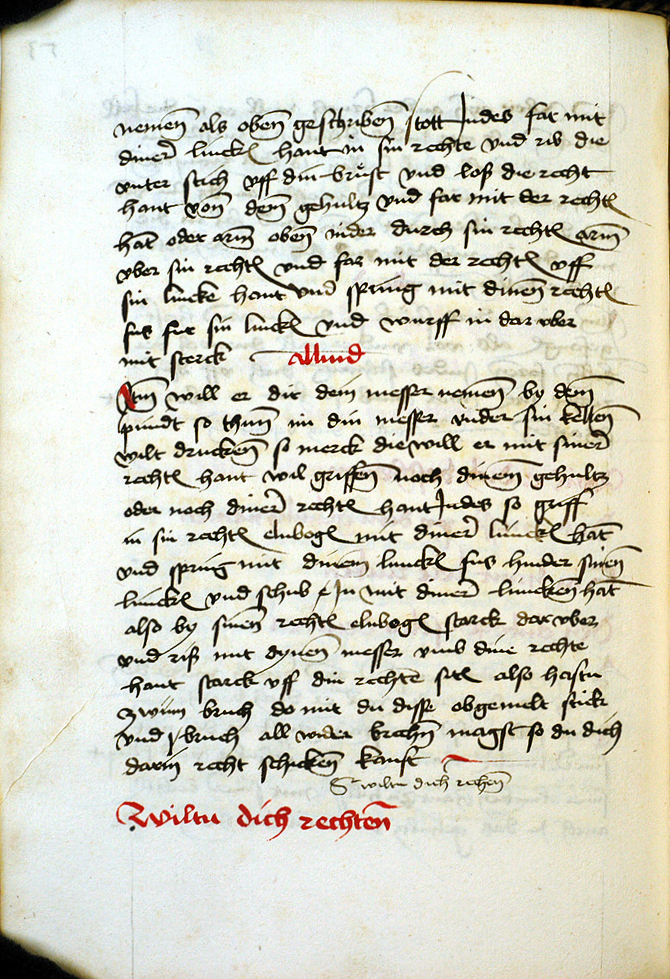 nemen als oben geschriben stott Indes far mit
diner linckē hant in sin rechte vnd rib die
vnter stich vff din brůst vnd loß die recht
hant von dem gehultz vnd far mit der rechtē
hāt oder arm oben inder durch sin rechtē arm
vber sin rechtē vnd far mit der rechtē vff
sin lincke hant vnd spring mit dinen rechtē
fus fur sin linckē vnd wurff in dar vber
mit sterck Aliud
Itm will er dir dein messer nemen by dem
so thun im din messer vnder sin
wilt drucken so merck die will er mit siner
rechtē hant wil griffen noch dinem gehultz
oder noch diner rechtē hant Indes so griff
in sin rechtē elnbogē mit diner linckē hāt
vnd spring mit dinem linckē fus hinder sinen
linckē vnd schub in mit diner lincken hāt
also by sinen rechtē elnbogē starck dar vber
vnd riß mit dynem messer vmb dine rechte
hant starck vff din rechte sitē also hastu
zwūn bruch do mit du disse obgemelt stick
vnd bruch all wider brechn magst so du dich
darin recht schicken kanst
wiltu dich rechen
Wiltu dich rechten